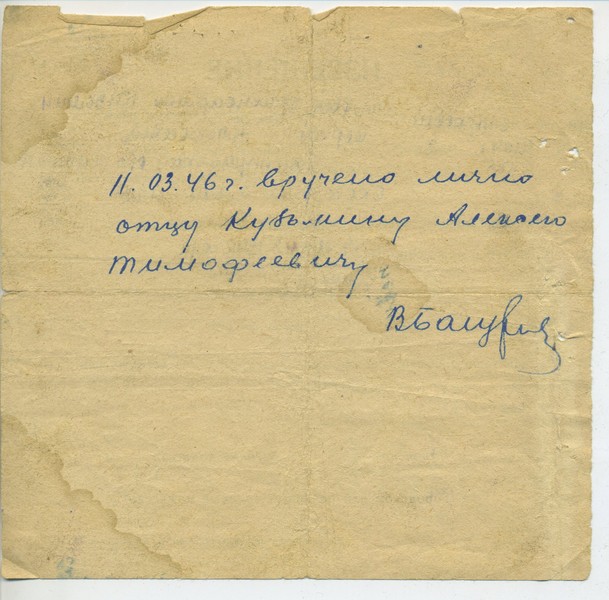 11.03.46 г. вручено лично
отцу Кузьмину Алексею
Тимофеевичу